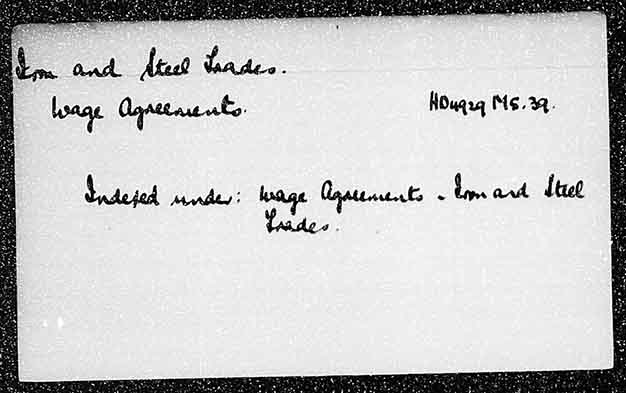 Iron and Steel Trades.
Wage Agreements. HD4929 M5.39.
Indexed under: Wage Agreements - Iron and Steel
Trades.